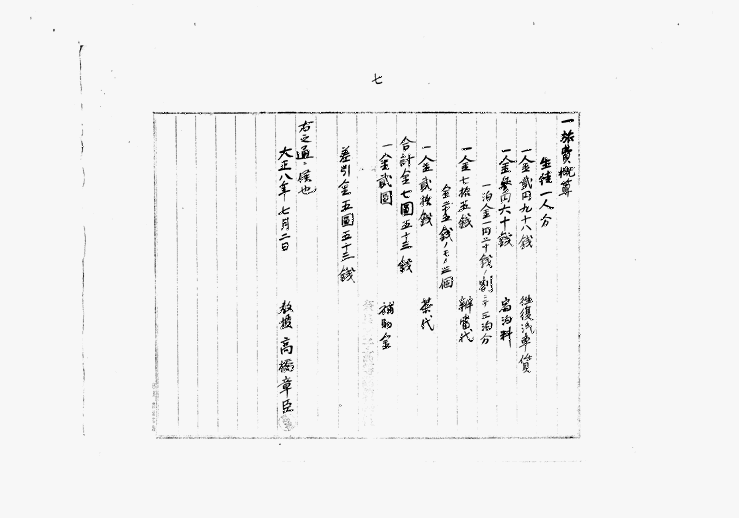 七
一 旅費概算
生徒一人分
一金貳円九十八銭 往復汽車賃
一金参円六十銭 宿泊料
一泊金一円二十銭ノ割ニテ三泊分
一金七拾五銭 辨當代
金二十五銭ノモノ三個
一金貳拾銭 茶代
合計金七圓五十三銭
一金貳圓 補助金
差引金五圓五十三銭
右之通ニ候也
大正八年七月二日
教授 高橋章臣